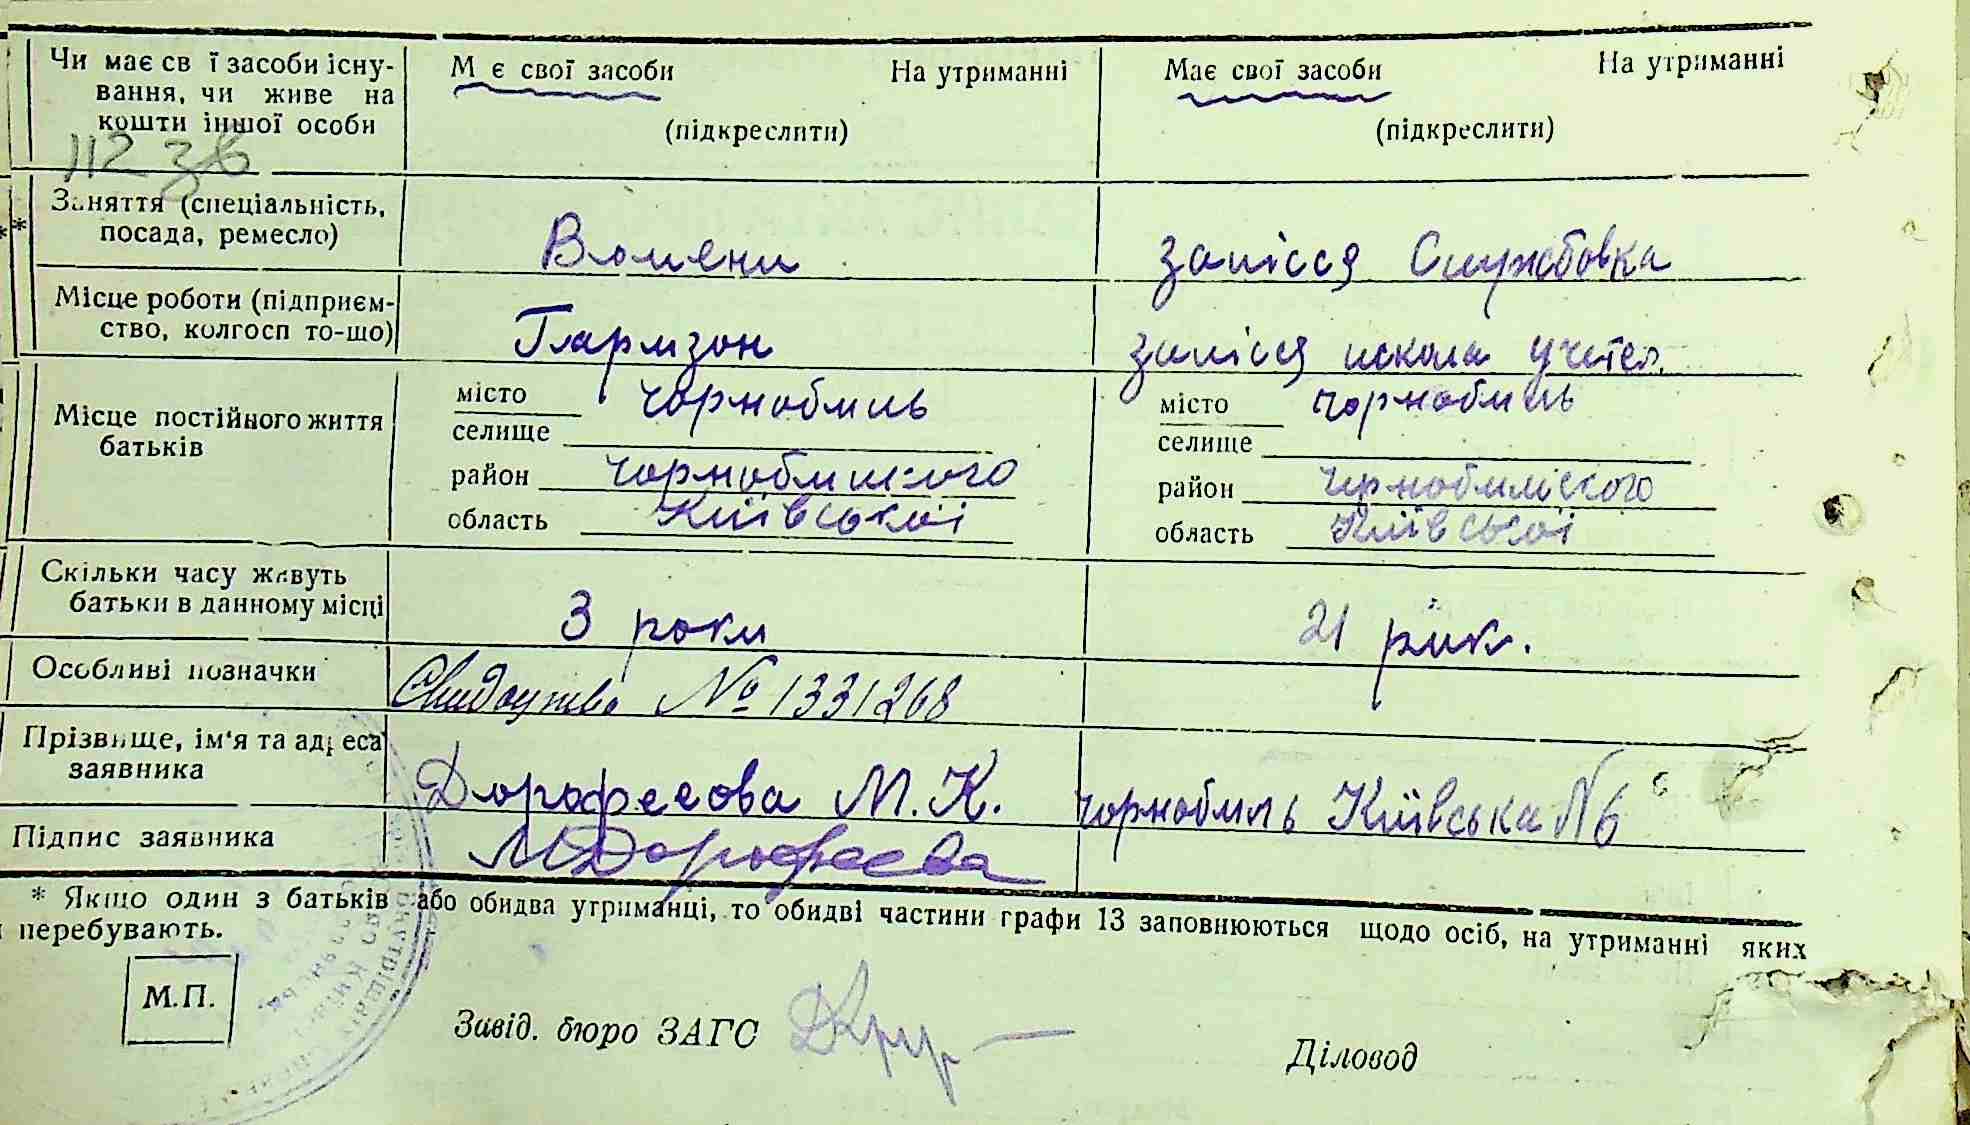 Чи має св ї засоби існу-
вання, чи живе на
кошти іншої особи
М є свої засоби На утриманні
(підкреслити)
Має свої засоби На утриманні
(підкреслити)
112
Заняття (спеціальність,
посада, ремесло)
залісся Службовка
Місце роботи (підприєм-
ство, колгосп то-що)
Гарнізон
залісся школа учител.
Місце постійного життя
батьків
місто Чорнобиль
селище
район Чорнобильського
область Київської
місто Чорнобиль
селище
район Чорнобильського
область Київської
Скільки часу живуть
батьки в данному місці
3 роки
21 рик.
Особливі позначки
Свидоцтво № 1331268
Прізвище, ім'я та адреса
заявника
Дорофеєова М. К. Чорнобиль Київська N 6
Підпис заявника
МДорофеева
* Якщо один з батьків або обидва утриманці, то обидві частини графи 13 заповнюються щодо осіб, на утриманні яких
перебувають.
М.П.
Завід. бюро ЗАГС
Діловод